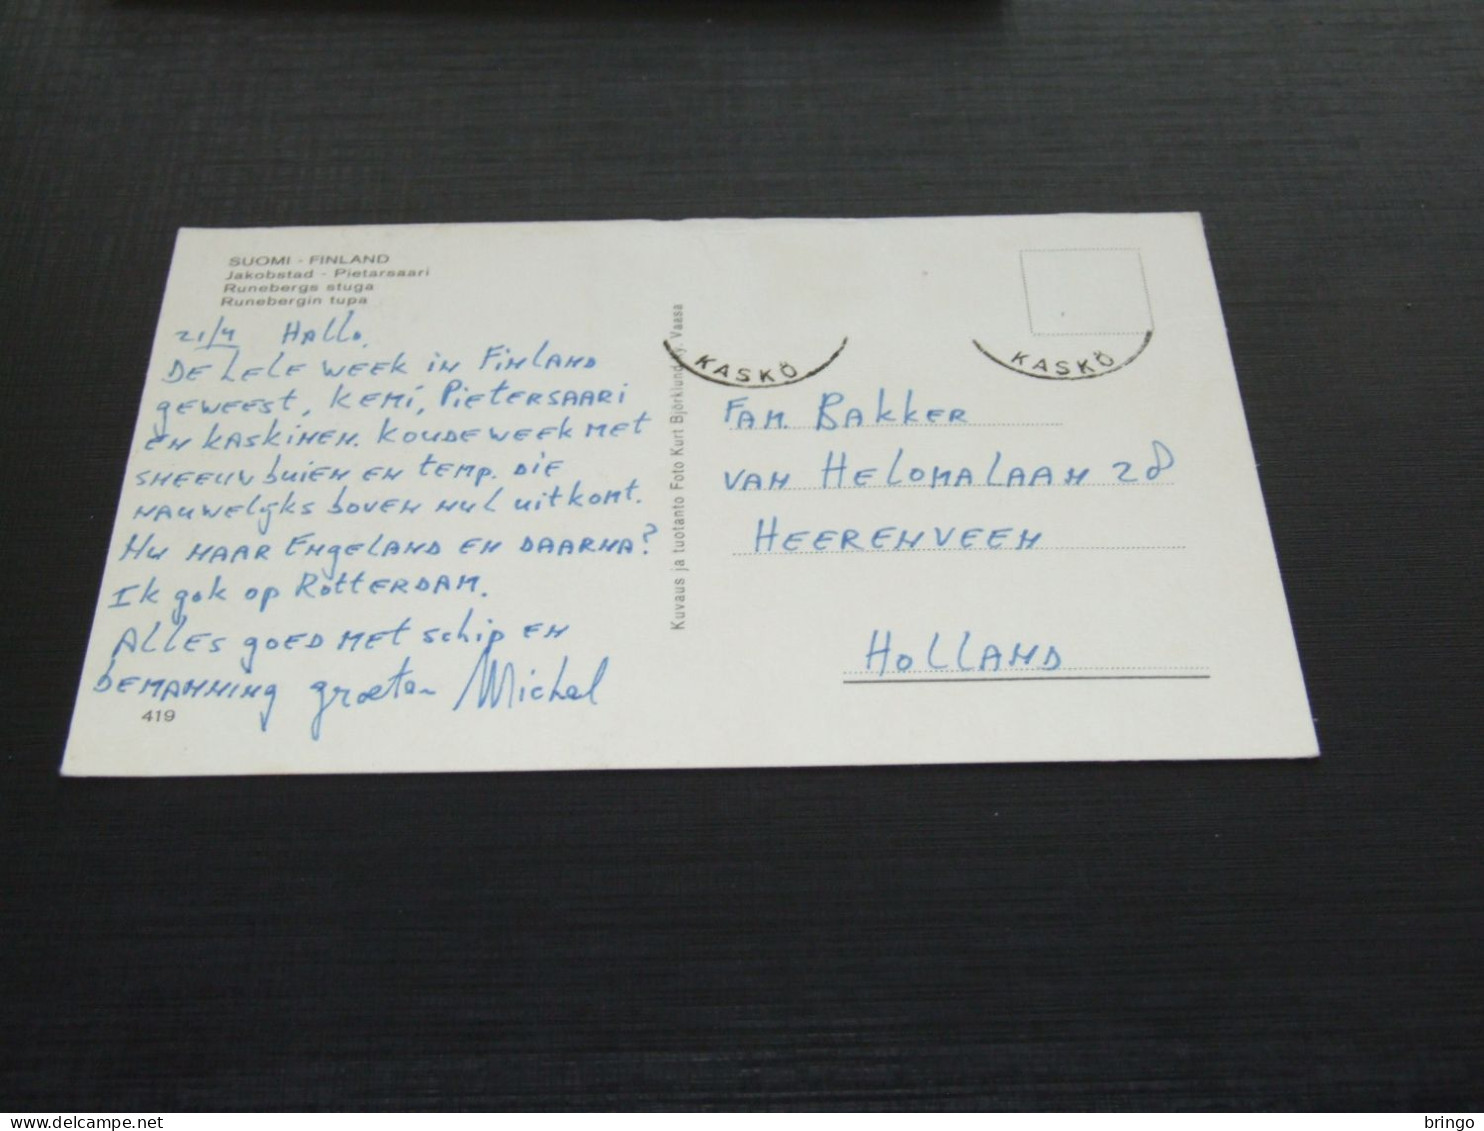 SUOMI - FINLAND
Jakobstad - Pietarsaari
Runebergs stuga
Runebergin tupa
21/4 Hallo.
De hele week in Finland
geweest, Kemi, Pietersaari
en Kaskinen. Koude week met
sneeuwbuien en temp. die
nauwelijks boven nul uitkomt.
Nu naar Engeland en daarna?
Ik gok op Rotterdam.
Alles goed met schip en
bemanning groeten Michel
419
Kuvaus ja tuotanto Foto Kurt Björklund Ky. Vaasa
KASKÖ
KASKÖ
Fam. Bakker
van Helomalaan 28
Heerenveen
Holland
www.delcampe.net
bringo